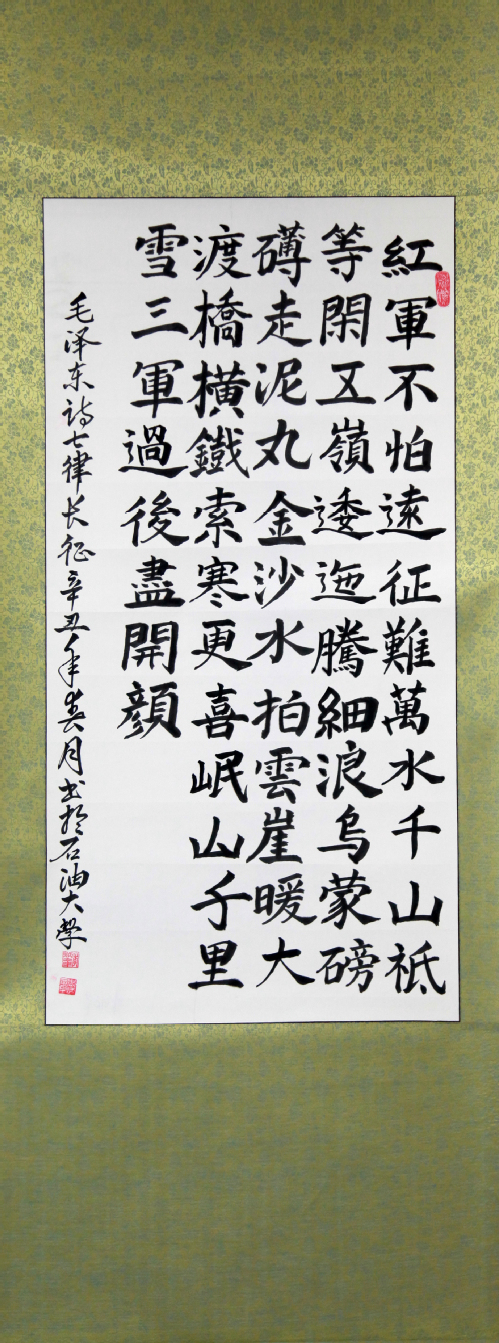 紅軍不怕遠征難萬水千山祗
等閑五嶺逶迤騰細浪烏蒙磅
礴走泥丸金沙水拍雲崖暖大
渡橋橫鐵索寒更喜岷山千里
雪三軍過後盡開顔
毛泽东诗七律长征辛丑年春月书於石油大學